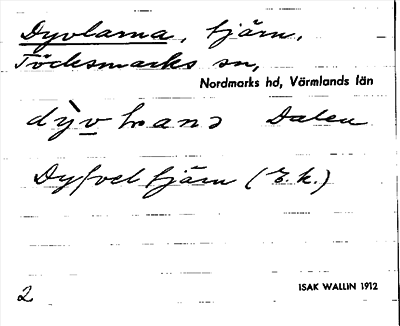 Dyvlarna, tjärn,
Töcksmarks sn,
Nordmarks hd, Värmlands län
Dalen
Dyfvel tjärn (E.k.)
2
ISAK WALLIN 1912